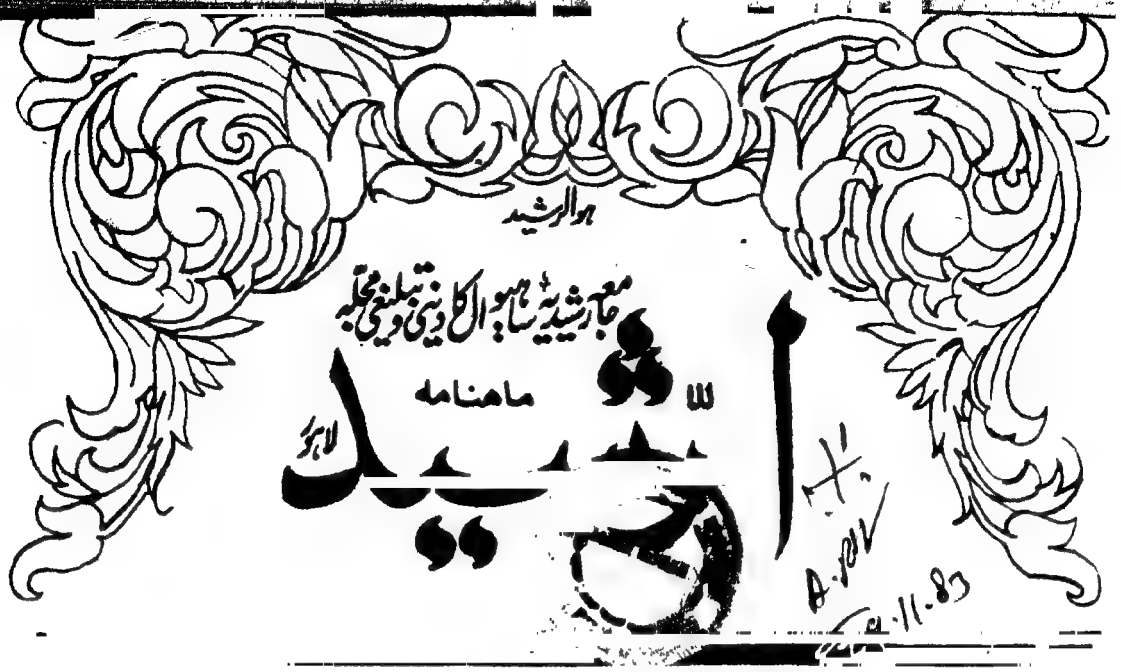 ہوالرشید
جامعہ رشیدیہ ساہیوال کا دینی و تبلیغی مجلہ
ماهنامه
الرشید
لاہور
11.83